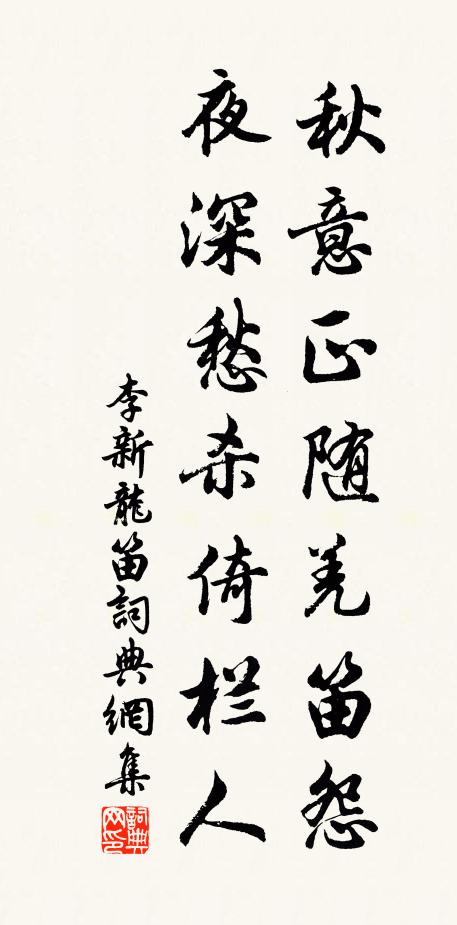 秋意正随羌笛怨
夜深愁杀倚栏人
李新龍笛詞典網集
詞典网印